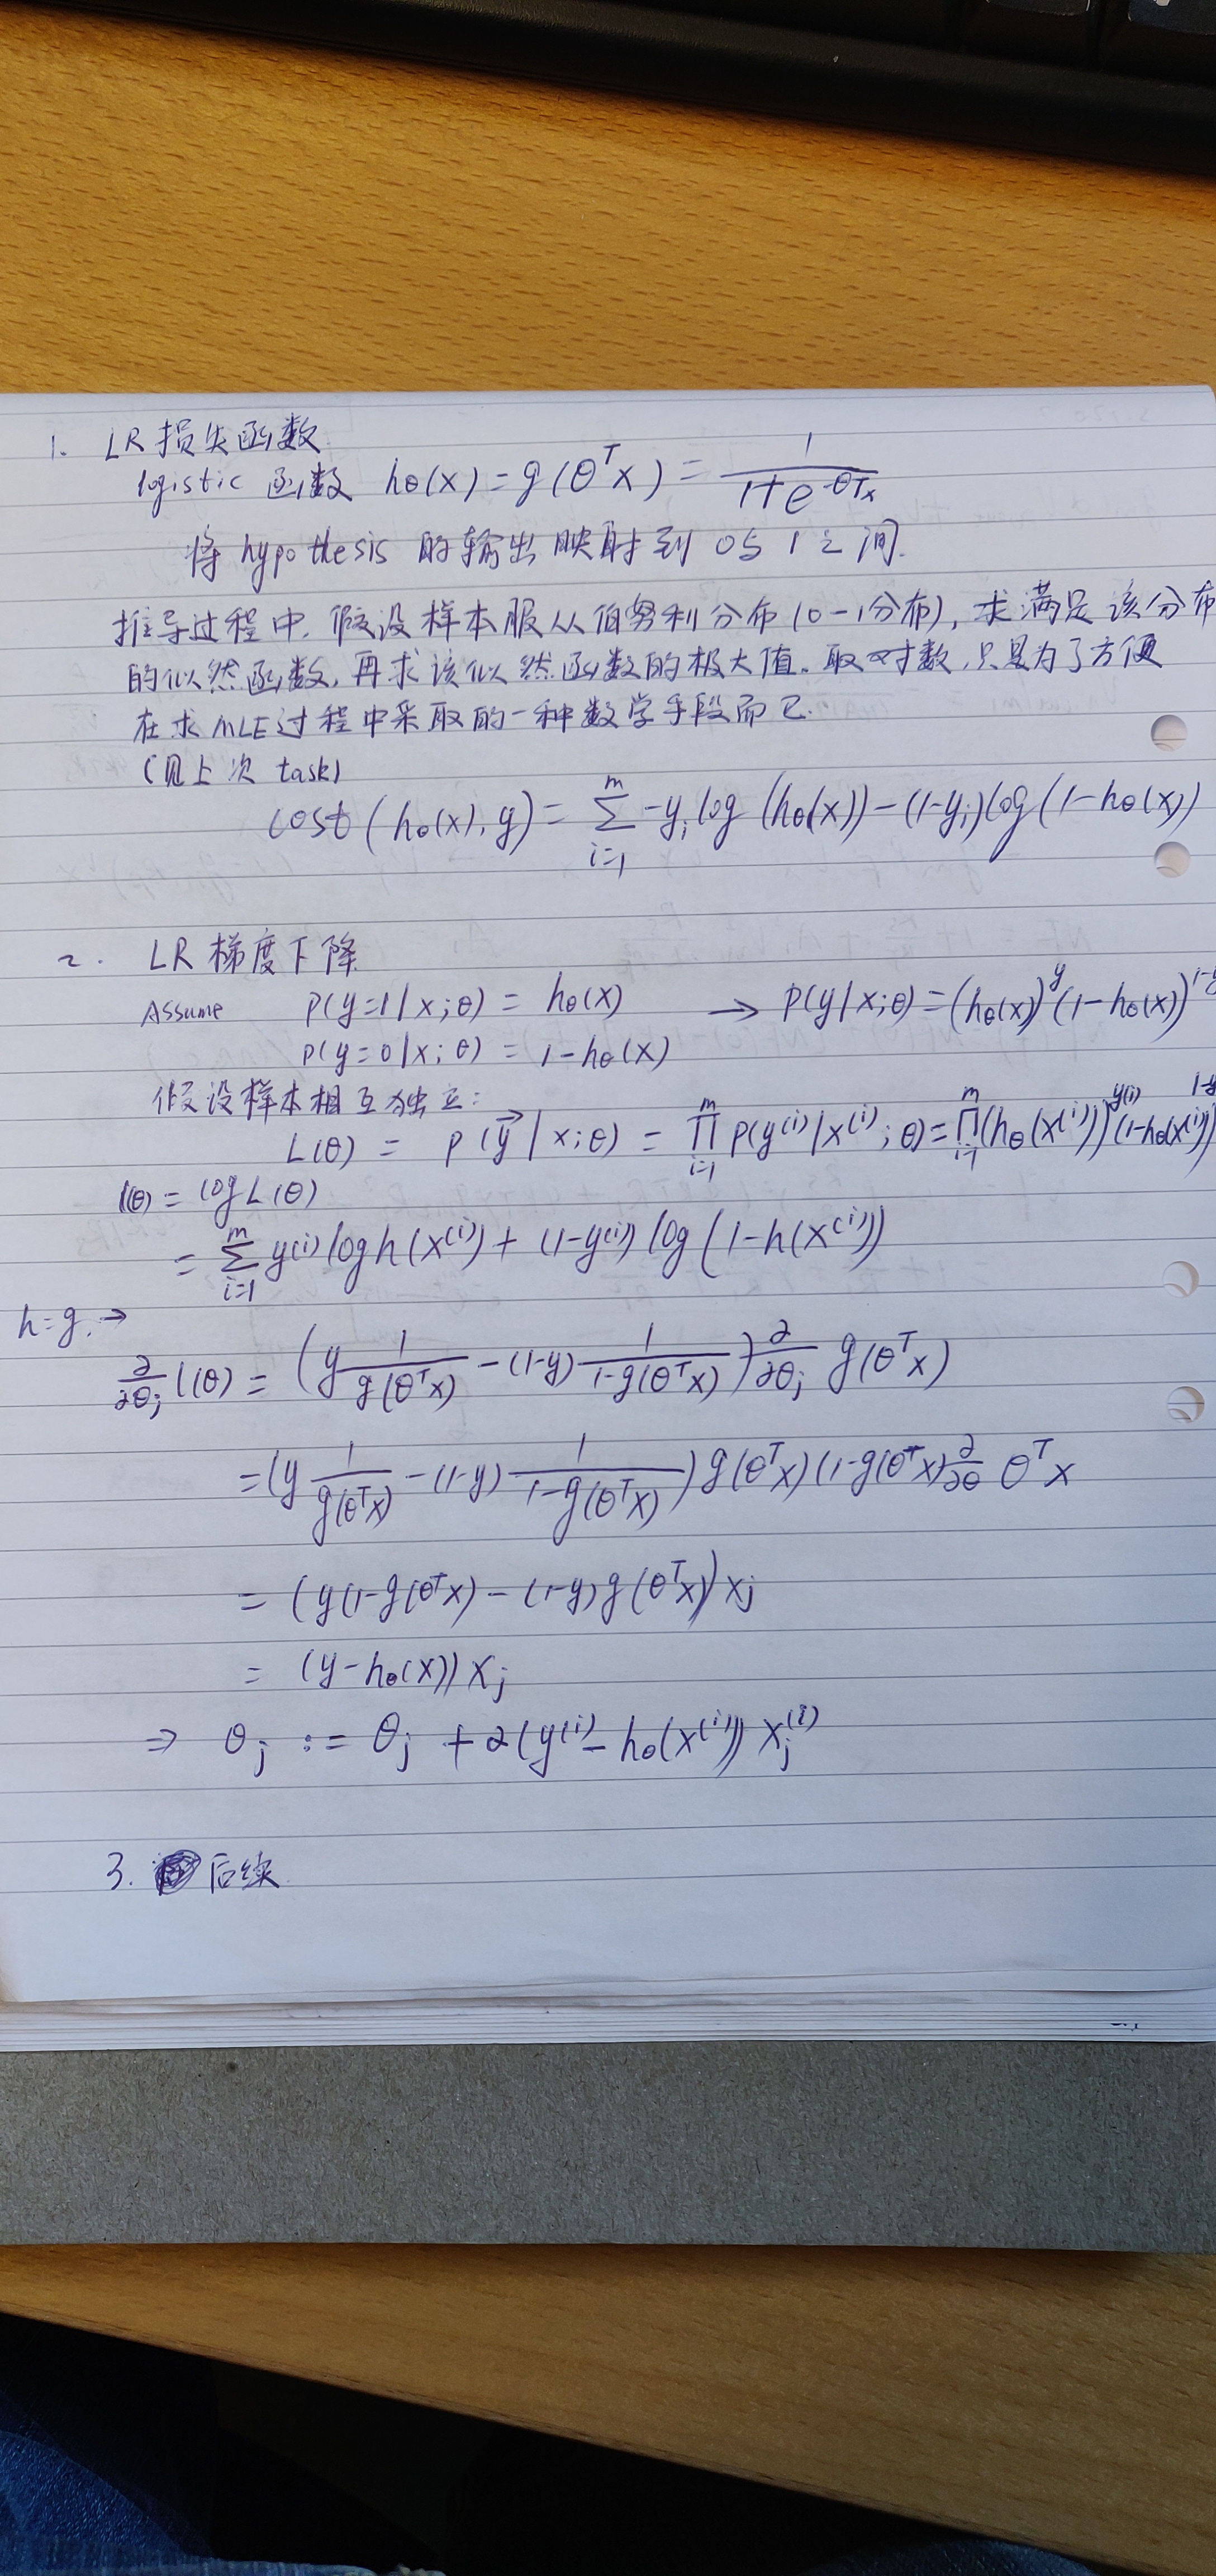 1. LR 损失函数
logistic 函数 hθ(x) = g(θᵀx) = 1/(1+e^(-θᵀx))
将 hypothesis 的输出映射到 0与1之间.
推导过程中, 假设样本服从伯努利分布(0-1分布), 求满足该分布
的似然函数, 再求该似然函数的极大值. 取对数, 只是为了方便
在求MLE过程中采取的一种数学手段而已.
(见上次 task)
cost(hθ(x), y) = Σ_{i=1}^{m} -y_i log(hθ(x)) - (1-y_i) log(1-hθ(x))
2. LR 梯度下降
Assume P(y=1|x;θ) = hθ(x) → P(y|x;θ) = (hθ(x))^y (1-hθ(x))^(1-y)
P(y=0|x;θ) = 1-hθ(x)
假设样本相互独立:
L(θ) = P(y⃗|x;θ) = ∏_{i=1}^{m} P(y⁽ⁱ⁾|x⁽ⁱ⁾;θ) = ∏_{i=1}^{m} (hθ(x⁽ⁱ⁾))^(y⁽ⁱ⁾) (1-hθ(x⁽ⁱ⁾))^(1-y
l(θ) = log L(θ)
= Σ_{i=1}^{m} y⁽ⁱ⁾ log h(x⁽ⁱ⁾) + (1-y⁽ⁱ⁾) log(1-h(x⁽ⁱ⁾))
h=g. →
∂/∂θj l(θ) = (y 1/g(θᵀx) - (1-y) 1/(1-g(θᵀx))) ∂/∂θj g(θᵀx)
= (y 1/g(θᵀx) - (1-y) 1/(1-g(θᵀx))) g(θᵀx)(1-g(θᵀx) ∂/∂θ θᵀx
= (y(1-g(θᵀx) - (1-y)g(θᵀx)) xj
= (y-hθ(x)) xj
⇒ θj := θj + α(y⁽ⁱ⁾ - hθ(x⁽ⁱ⁾)) xj⁽ⁱ⁾
3. 后续